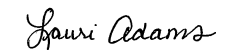 Lauri Adams